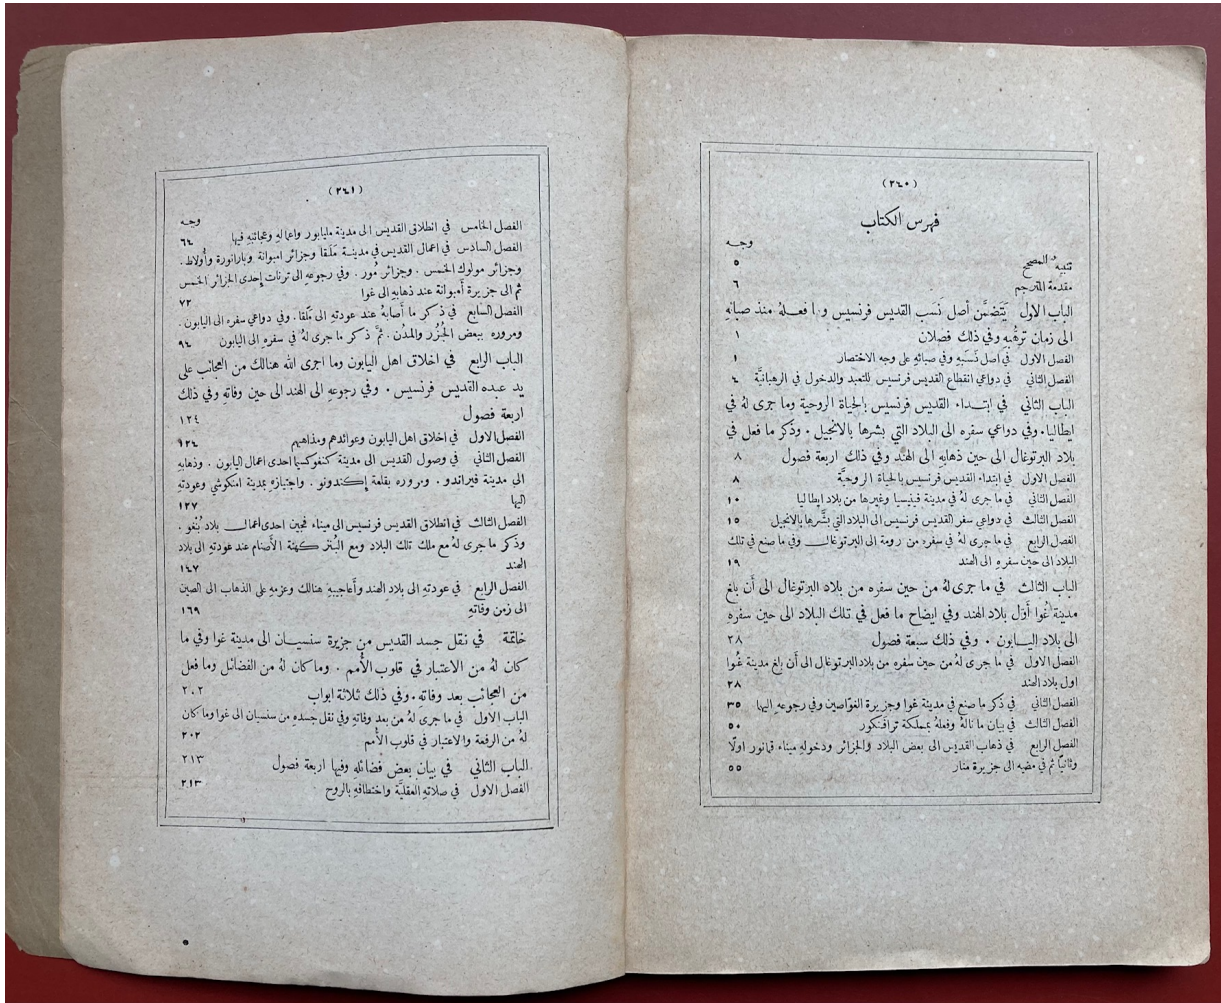 (٢٤٠)
فهرس الكتاب
وجه
تنبيه المصحح ٥
مقدمة المترجم ٦
الباب الاول يَتَضمَّن أصل نَسب القديس فرنسيس وما فعلهُ منذ صبائهِ
الى زمان ترهُّبهِ وفي ذلك فصلان ١
الفصل الاول في اصل نَسَبهِ وفي صبائهِ على وجه الاختصار ١
الفصل الثاني في دواعي انقطاع القديس فرنسيس للتعبد والدخول في الرهبانيَّة ٤
الباب الثاني في ابتداء القديس فرنسيس بالحياة الروحية وما جرى لهُ في
ايطاليا. وفي دواعي سفره الى البلاد التي بشرها بالانجيل. وذكر ما فعل في
بلاد البرتوغال الى حين ذهابهِ الى الهند وفي ذلك اربعة فصول ٨
الفصل الاول في إبتداء القديس فرنسيس بالحياة الروحيَّة ٨
الفصل الثاني في ما جرى لهُ في مدينة فينيسيا وغيرها من بلاد ايطاليا ١٠
الفصل الثالث في دواعي سفر القديس فرنسيس الى البلاد التي بشَّرها بالانجيل ١٥
الفصل الرابع في ما جرى لهُ في سفره من رومة الى البرتوغال وفي ما صنع في تلك
البلاد الى حين سفرهِ الى الهند ١٩
الباب الثالث في ما جرى لهُ من حين سفره من بلاد البرتوغال الى أن بلغ
مدينة غُوا أوّل بلاد الهند وفي ايضاح ما فعل في تلك البلاد الى حين سفره
الى بلاد اليابون. وفي ذلك سبعة فصول ٢٨
الفصل الاول في ما جرى لهُ من حين سفره من بلاد البرتوغال الى أن بلغ مدينة غُوا
اول بلاد الهند ٢٨
الفصل الثاني في ذكر ما صنع في مدينة غوا وجزيرة الغوّاصين وفي رجوعهِ اليها ٣٥
الفصل الثالث في بيان ما نالهُ وفعلهُ بمملكة ترافنكور ٥٠
الفصل الرابع في ذهاب القديس الى بعض البلاد والجزائر ودخولهِ ميناء قمانور اولًا
وثانيًا ثم في مضيه الى جزيرة منار ٥٥
(٢٤١)
وجه
الفصل الخامس في انطلاق القديس الى مدينة مليابور واعمالهِ وعجائبهِ فيها ٦٤
الفصل السادس في اعمال القديس في مدينة مَلَقا وجزائر امبوانة وبارانورة وأُولاط.
وجزائر مولوك الخمس. وجزائر مُور. وفي رجوعهِ الى ترنات إحدى الجزائر الخمس
ثم الى جزيرة أمبوانة عند ذهابهِ الى غوا ٧٢
الفصل السابع في ذكر ما أصابهُ عند عودتهِ الى ملَّقا. وفي دواعي سفره الى اليابون.
ومروره ببعض الجُزُر والمدُن. ثمَّ ذكر ما جرى لهُ في سفرهِ الى اليابون ٩٤
الباب الرابع في اخلاق اهل اليابون وما اجرى الله هنالك من العجائب على
يد عبده القديس فرنسيس. وفي رجوعهِ الى الهند الى حين وفاتهِ وفي ذلك
اربعة فصول ١٢٤
الفصل الاول في اخلاق اهل اليابون وعوائدهم ومذاهبهم ١٢٤
الفصل الثاني في وصول القديس الى مدينة كنغوكسيما احدى اعمال اليابون. وذهابهِ
الى مدينة فيراندو. ومروره بقلعة إكندونو. واجتيازهِ بمدينة امنكوشي وعودتهِ
اليها ١٢٧
الفصل الثالث في انطلاق القديس فرنسيس الى ميناء فجين احدى اعمال بلاد بُنغو.
وذكر ما جرى لهُ مع ملك تلك البلاد ومع البُنز كهنة الأَصنام عند عودتهِ الى بلاد
الهند ١٤٧
الفصل الرابع في عودتهِ الى بلاد الهند وأعاجيبهِ هنالك وعزمهِ على الذهاب الى الصين
الى زمن وفاتهِ ١٦٩
خاتمة في نقل جسد القديس من جزيرة سنسيان الى مدينة غوا وفي ما
كان لهُ من الاعتبار في قلوب الأُمم. وما كان لهُ من الفضائل وما فعل
من العجائب بعد وفاتهِ. وفي ذلك ثلاثة ابواب ٢٠٢
الباب الاول في ما جرى لهُ من بعد وفاتهِ وفي نقل جسده من سنسيان الى غوا وما كان
لهُ من الرفعة والاعتبار في قلوب الأُمم ٢٠٢
الباب الثاني في بيان بعض فضائلهِ وفيها اربعة فصول ٢١٣
الفصل الاول في صلاتهِ العقليَّة واختطافهِ بالروح ٢١٣